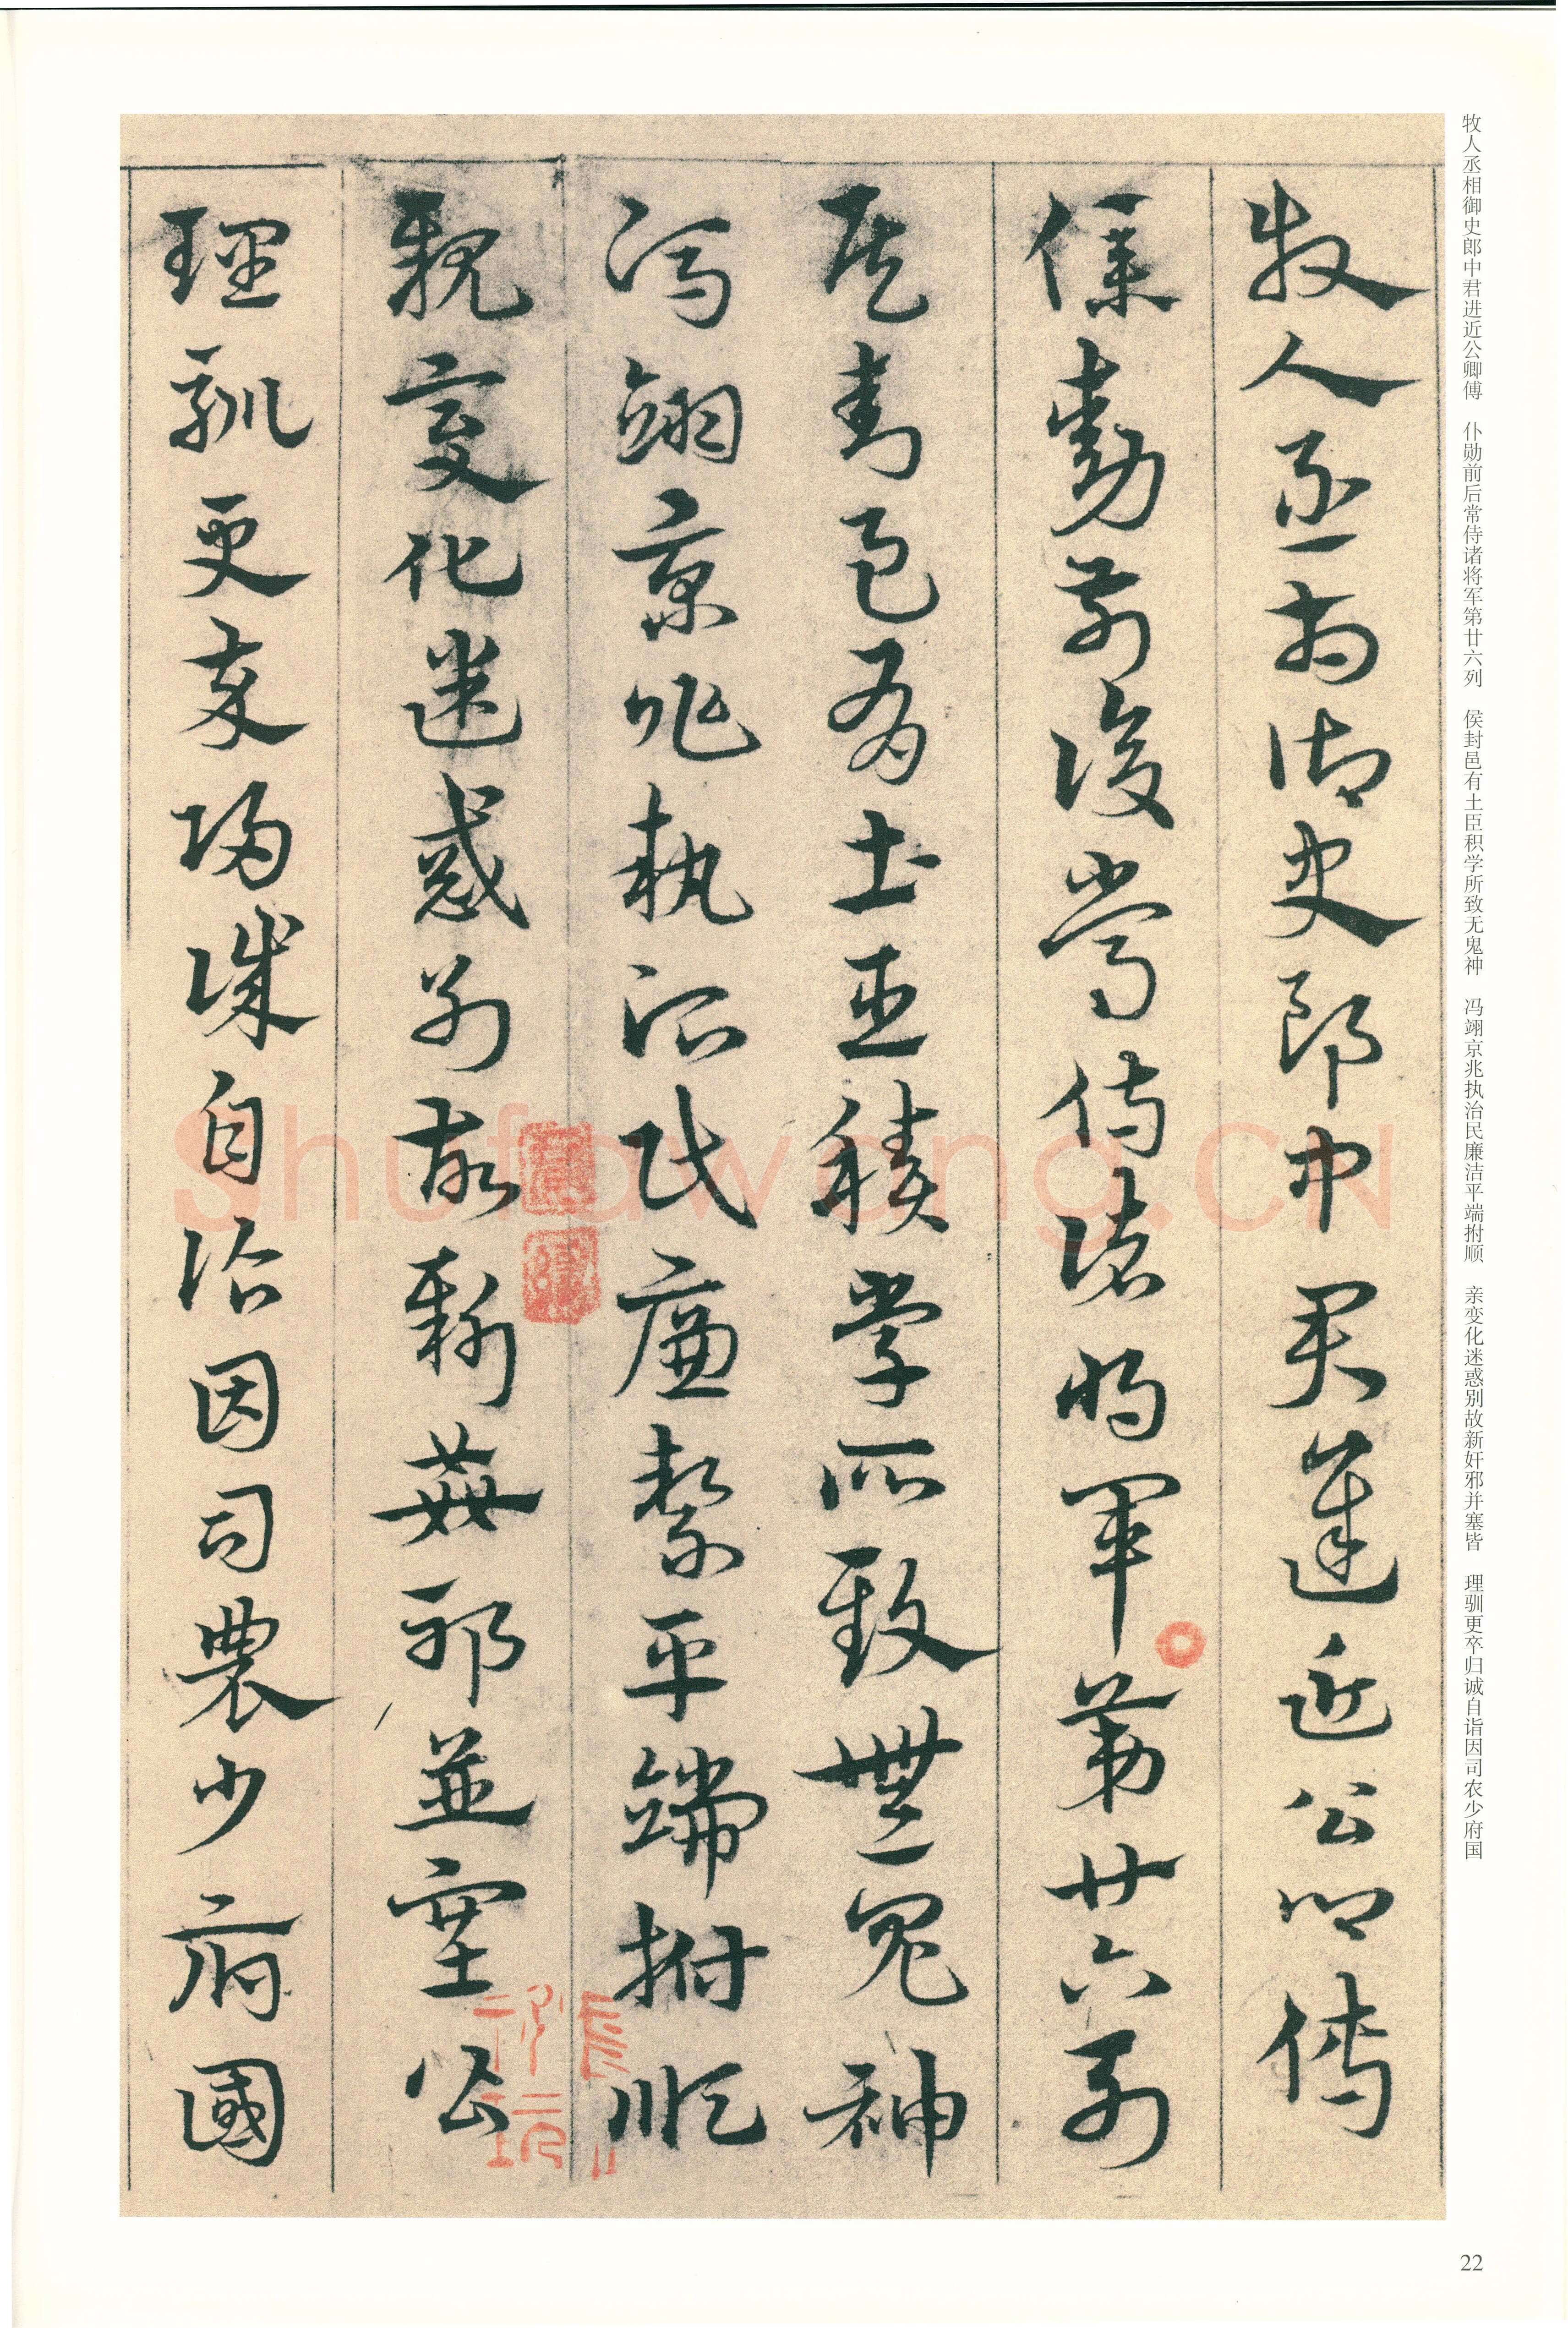 牧人丞相御史郎中君進近公卿傅
僕勳前後常侍諸將軍第廿六列
侯封邑有土臣積學所致無鬼神
馮翊京兆執治民廉絜平端拊順
親變化迷惑別故新姦邪並塞皆
理馴更卒歸誠自詣因司農少府國
牧人丞相御史郎中君进近公卿傅 仆勋前后常侍诸将军第廿六列 侯封邑有土臣积学所致无鬼神 冯翊京兆执治民廉洁平端拊顺 亲变化迷惑别故新奸邪并塞皆 理驯更卒归诚自诣因司农少府国
Shufawang.CN
22